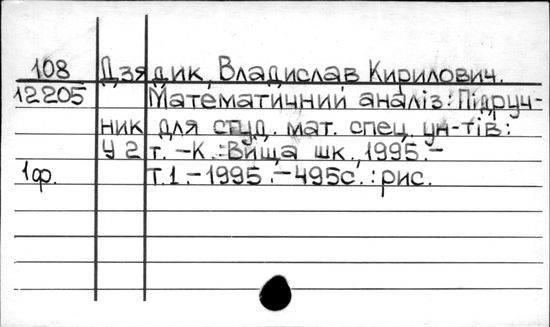 108 Дзядик, Владислав Кирилович.
12205 Математичний аналіз: Підруч-
ник для студ. мат. спец. ун-тів:
У 2 т. -К.: Вища шк., 1995.-
1ф. Т.1.-1995.-495с.: рис.